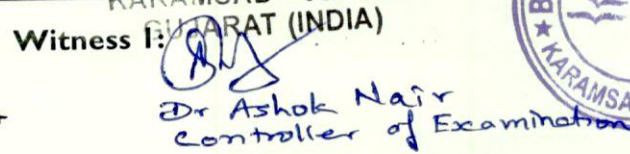 KARAMSAD
GUJARAT (INDIA)
Witness I:
Dr Ashok Nair
Controller of Examination
KARAMSA